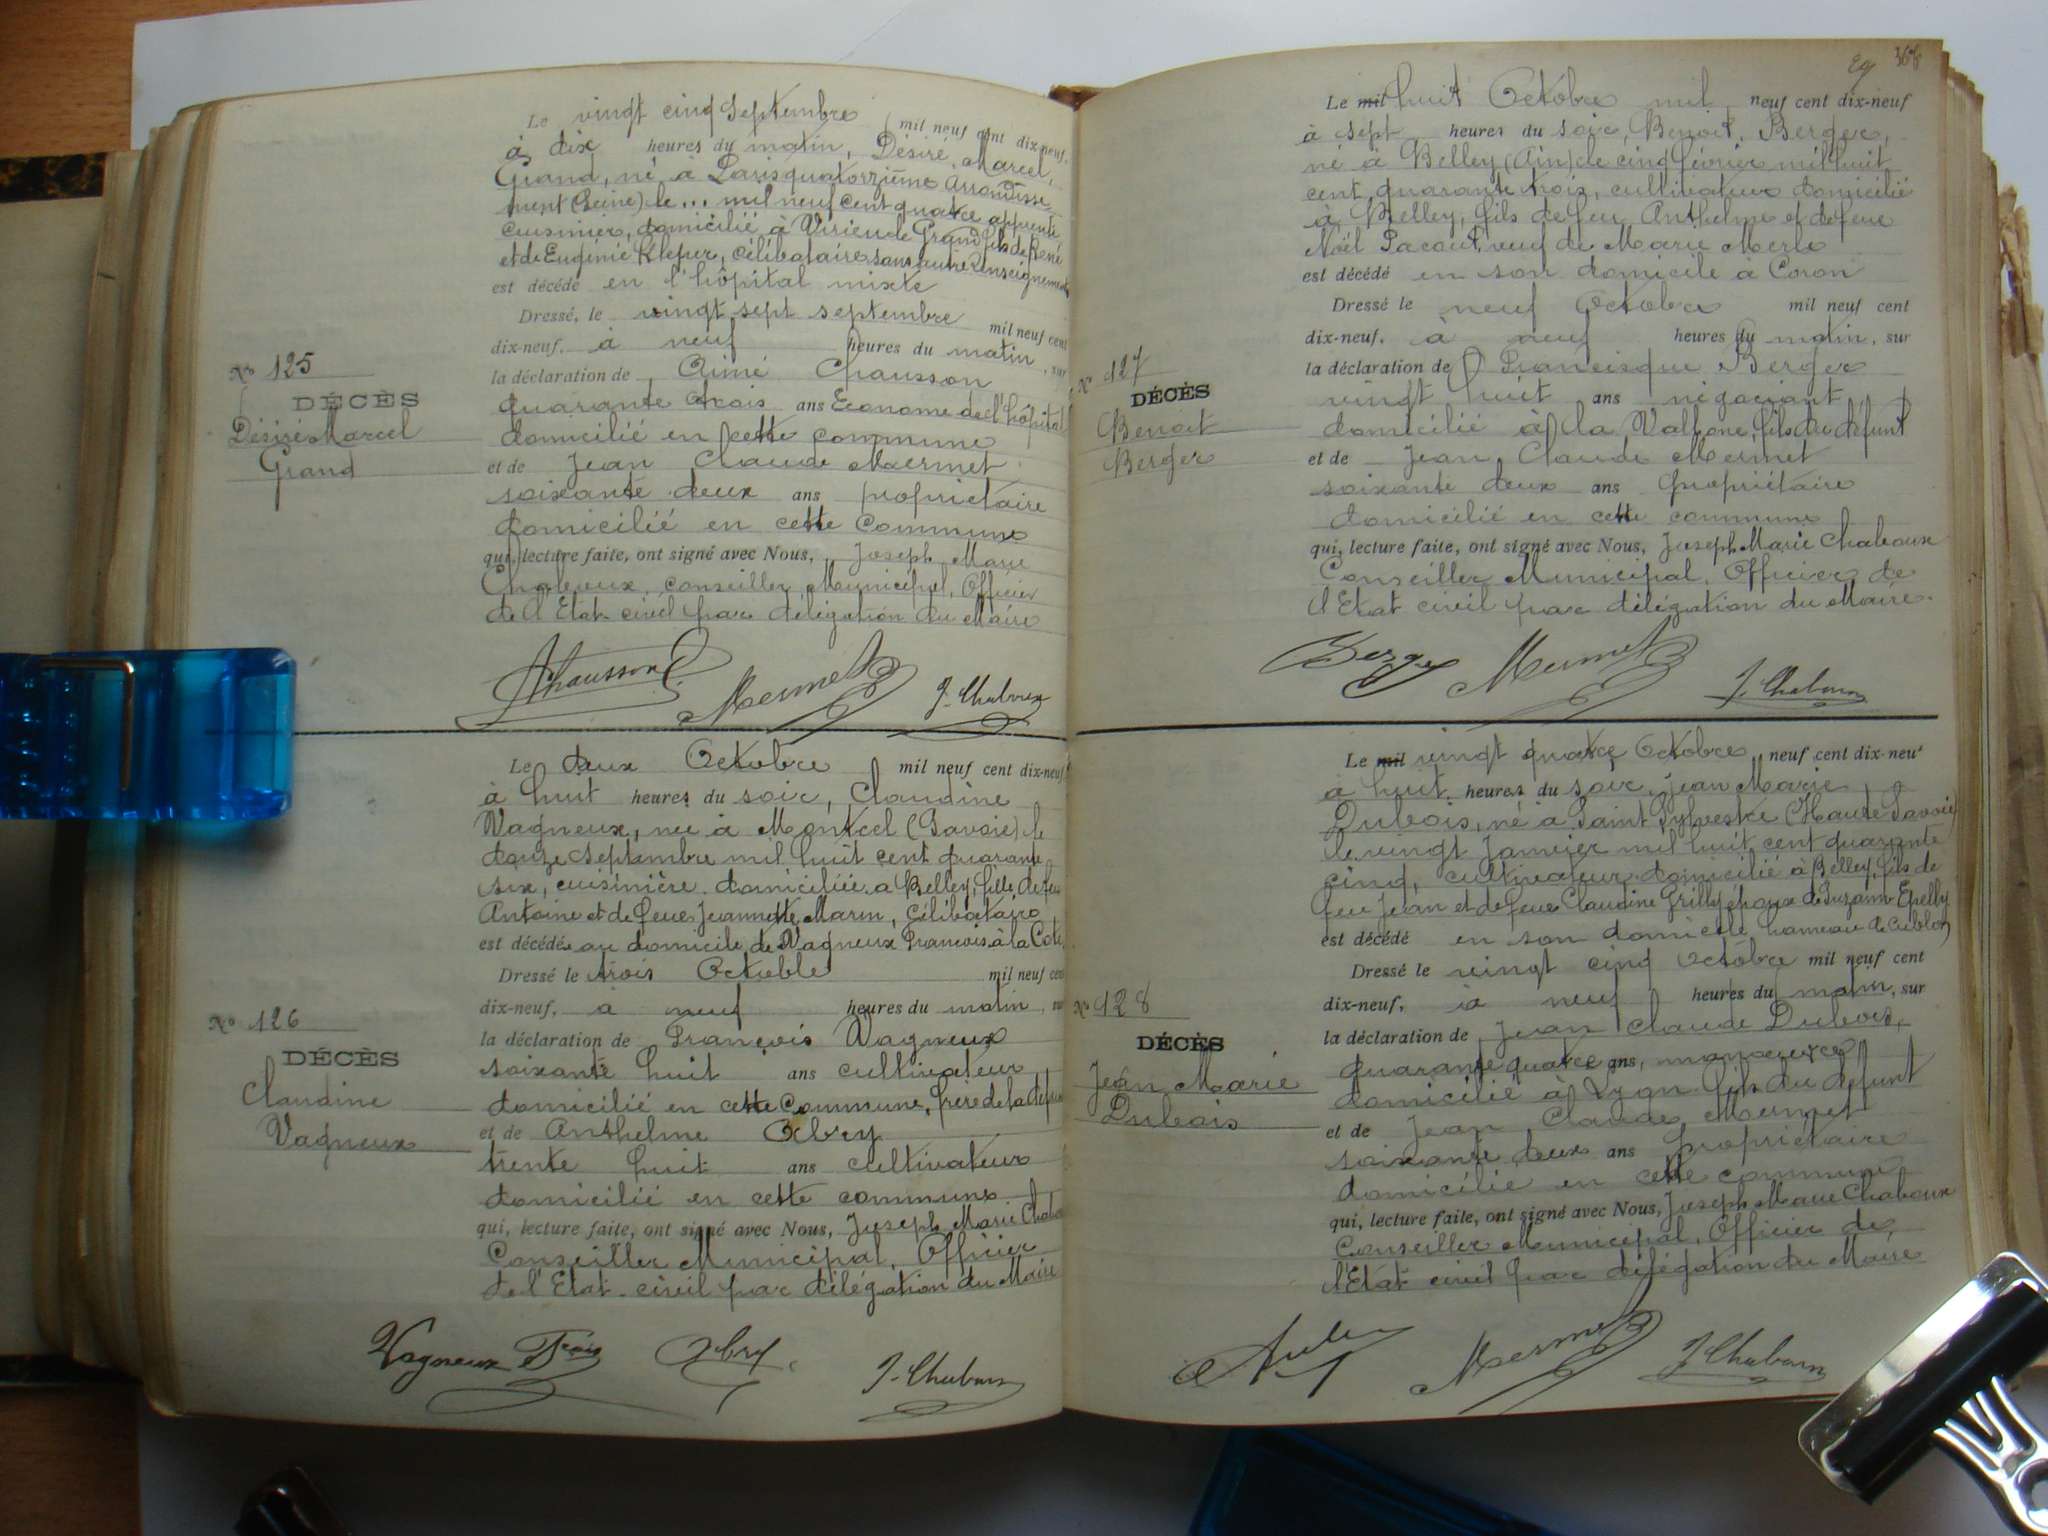 Le vingt cinq Septembre mil neuf cent dix-neuf,
à dix heures du matin, Désiré, Marcel,
Grand, né à Paris quatorzième Arrondisse
ment (Seine) le ... mil neuf cent quatre apprenti
cuisinier, domicilié à Virieu le Grand fils de René
et de Eugénie Klefer, célibataire sans autre renseignement
est décédé en l'hôpital mixte
Dressé, le vingt sept septembre mil neuf cent
dix-neuf, à neuf heures du matin, sur
la déclaration de Aimé Chausson
quarante trois ans Econome de l'hôpital
domicilié en cette commune
et de Jean Claude Mermet
soixante deux ans propriétaire
domicilié en cette commune
qui, lecture faite, ont signé avec Nous, Joseph Marie
Chaboux, conseiller Municipal, Officier
de l'Etat-civil par délégation du Maire
No 125
DÉCÈS
Désiré Marcel
Grand
Chausson Mermet J. Chaboux
Le deux Octobre mil neuf cent dix-neuf
à huit heures du soir, Claudine
Vagneux, née à Montcel (Savoie) le
douze Septembre mil huit cent quarante
six, cuisinière domiciliée à Belley, fille de feu
Antoine et de feue Jeannette Marin, Célibataire
est décédée au domicile de Vagneux François à la Cote
Dressé le trois Octobre mil neuf cent
dix-neuf, à neuf heures du matin, sur
la déclaration de François Vagneux
soixante huit ans cultivateur
domicilié en cette Commune, frère de la défunte
et de Anthelme Obry
trente huit ans cultivateur
domicilié en cette commune
qui, lecture faite, ont signé avec Nous, Joseph Marie Chaboux
Conseiller Municipal, Officier
de l'Etat-civil par délégation du Maire
No 126
DÉCÈS
Claudine
Vagneux
Vagneux Fçois Obry J. Chaboux
368
Le mil huit Octobre mil neuf cent dix-neuf
à sept heures du soir, Benoit, Berger,
né à Belley (Ain) le cinq février mil huit
cent quarante trois, cultivateur domicilié
à Belley, fils de feu Anthelme et de feue
Noël Pacout, veuf de Marie Merle
est décédé en son domicile à Coron
Dressé le neuf Octobre mil neuf cent
dix-neuf, à neuf heures du matin, sur
la déclaration de Francisque Berger
vingt huit ans négociant
domicilié à la Valbone, fils du défunt
et de Jean Claude Mermet
soixante deux ans propriétaire
domicilié en cette commune
qui, lecture faite, ont signé avec Nous, Joseph Marie Chaboux
Conseiller Municipal, Officier de
l'Etat civil par délégation du Maire.
No 127
DÉCÈS
Benoit
Berger
Berger Mermet J. Chaboux
Le mil vingt quatre Octobre neuf cent dix-neuf
à huit heures du soir, Jean Marie
Dubois, né à Saint Sylvestre (Haute Savoie)
le vingt Janvier mil huit cent quarante
cinq, cultivateur domicilié à Belley, fils de
feu Jean et de feue Claudine Grilly époux de Suzann Epelly
est décédé en son domicile hameau de Cublon
Dressé le vingt cinq Octobre mil neuf cent
dix-neuf, à neuf heures du matin, sur
la déclaration de Jean Claude Dubois,
quarante quatre ans, manoeuvre
domicilié à Lyon fils du défunt
et de Jean Claude Mermet
soixante deux ans propriétaire
domicilié en cette commune
qui, lecture faite, ont signé avec Nous, Joseph Marie Chaboux
Conseiller Municipal, Officier de
l'Etat civil par délégation du Maire
No 128
DÉCÈS
Jean Marie
Dubois
Mermet J. Chaboux